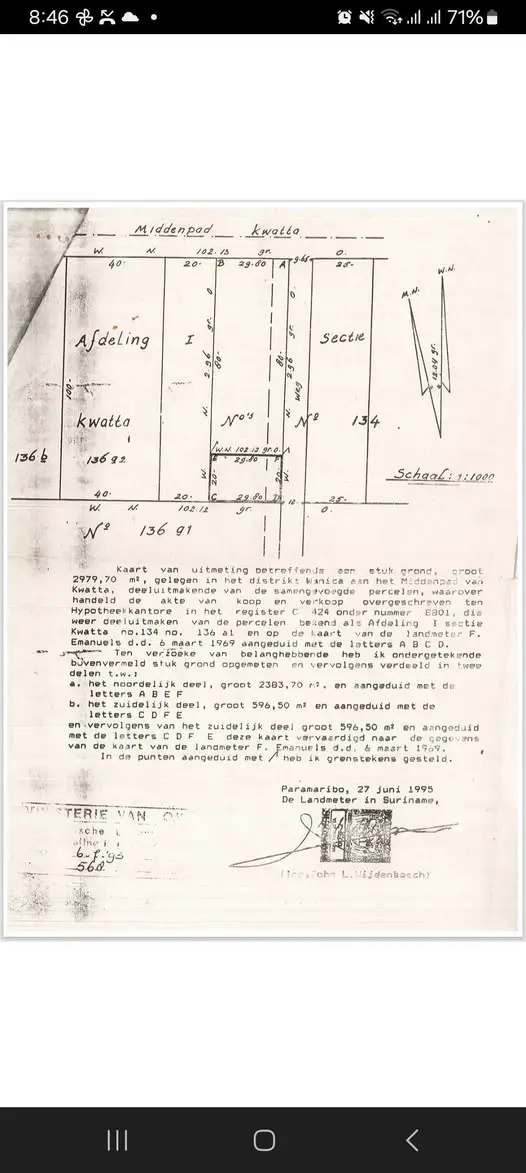 8:46
71%
Middenpad Kwatta
W. N. 102.13 gr. O.
40. 20. B 29.80 A 9.65 25.
Afdeling I Sectie
100.
N. 2.96 gr. O
80.
N. 2.96 gr. O
80.
Weg
M.N.
W.N.
12.04 gr.
Kwatta Nos No 134
W.N. 102.12 gr. O.
136 b 136 g2 E 29.80 F
Schaal: 1:1000
W. 20. W. 20.
40. 20. C 29.80 D 10. 25.
W. N. 102.12 gr. O.
No 136 g1
Kaart van uitmeting betreffende een stuk grond, groot
2979,70 m², gelegen in het distrikt Wanica aan het Middenpad van
Kwatta, deeluitmakende van de samengevoegde percelen, waarover
handeld de akte van koop en verkoop overgeschreven ten
Hypotheekkantore in het register C 424 onder nummer 8801, die
weer deeluitmaken van de percelen bekend als Afdeling I sectie
Kwatta no.134 no. 136 a1 en op de kaart van de landmeter F.
Emanuels d.d. 6 maart 1969 aangeduid met de letters A B C D.
Ten verzoeke van belanghebbende heb ik ondergetekende
bovenvermeld stuk grond opgemeten en vervolgens verdeeld in twee
delen t.w.:
a. het noordelijk deel, groot 2383,70 m², en aangeduid met de
letters A B E F
b. het zuidelijk deel, groot 596,50 m² en aangeduid met de
letters C D F E
en vervolgens van het zuidelijk deel groot 596,50 m² en aangeduid
met de letters C D F E deze kaart vervaardigd naar de gegevens
van de kaart van de landmeter F. Emanuels d.d. 6 maart 1969.
In de punten aangeduid met heb ik grenstekens gesteld.
Paramaribo, 27 juni 1995
De Landmeter in Suriname,
STERIE VAN
sche
568
(Ing.John L.Wijdenbosch)